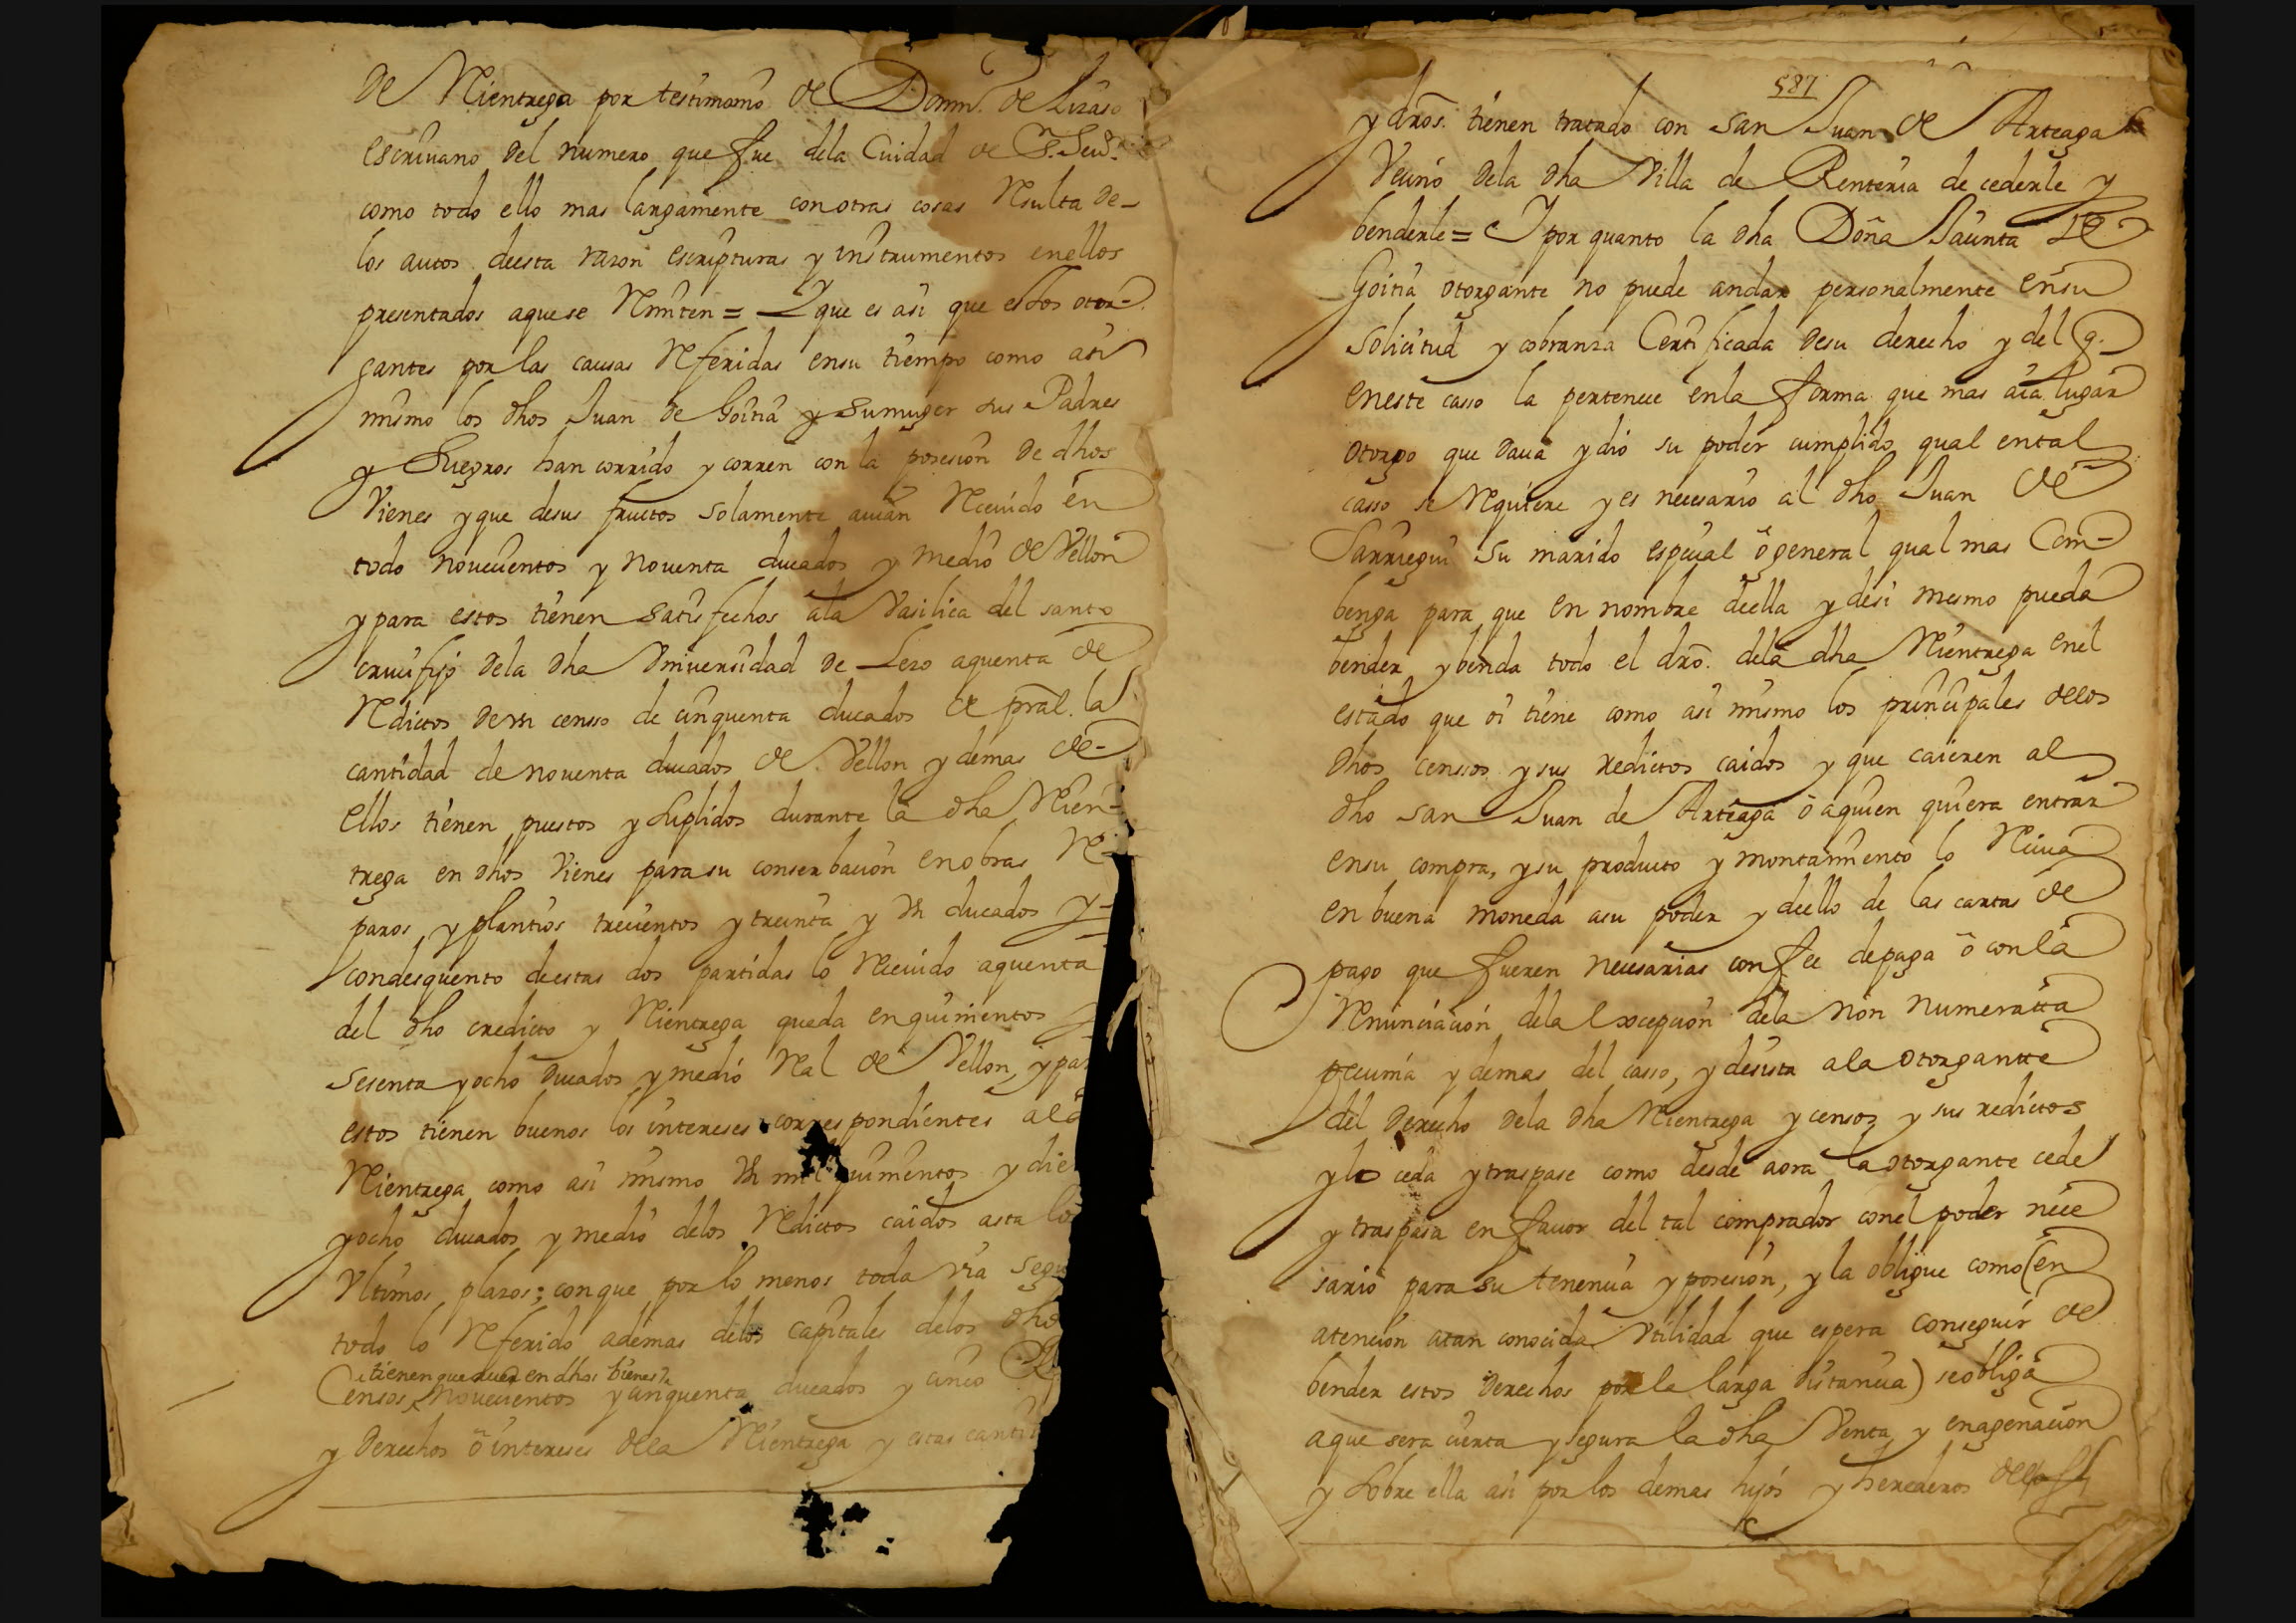 de Rientrega por testimonio de Domin. de Lizaso
escrivano del numero que fue dela Ciudad de S. Seu.
como todo ello mas largamente conotras cosas Resulta de-
los autos deesta razon escripturas y instrumentos enellos
presentados aquese Rmiten = Y que es asi que estos otor-
gantes por las causas Referidas ensu tiempo como asi
mismo los dhos Juan de Goitia y sumuger sus Padres
y Suegros han corrido y corren con la posesion de dhos
Vienes y que desus fructos solamente auian Receuido en
todo noueuientos y nouenta ducados y medio de Vellon
y para estos tienen satisfechos ala Vasilica del santo
crucifijo dela dha Vniversidad de Lezo aquenta de
Redictos de vn censso de cinquenta ducados de pral. la
cantidad de nouenta ducados de Vellon y demas de-
ellos tienen puestos y suplidos durante la dha Rien-
trega en dhos Vienes para su conserbacion enobras Re-
paros y plantios trecientos y treinta y vn ducados y-
condesquento deestas dos partidas lo Receuido aquenta
del dho credicto y Rientrega queda en quinientos y
sesenta y ocho ducados y medio Real de Vellon, y par
estos tienen buenos los intereses correspondientes ala
Rientrega como asi mismo vn mil quinientos y die
y ocho ducados y medio delos Redictos caidos asta los
Vltimos plazos; conque por lo menos toda via segu
todo lo Referido ademas delos capitales delos dho
tienen que auer en dhos bienes
Censos noueuientos y cinquenta ducados y cinco
y derechos ô intereses dela Rientrega y estas canti
587
y dros. tienen tratado con San Juan de Arteaga
Vecino dela dha Villa de Renteria de cederle y
benderle = Y por quanto la dha Doña Jacinta de
Goitia otorgante no puede andar personalmente ensu
solicitud y cobranza Certificada desu derecho y del q.
eneste casso la pertenece enla forma que mas aia lugar
otorgo que daua y dio su poder cumplido qual ental
casso se Requiere y es necesario al dho Juan de
Sarriegui su marido especial ô general qual mas Com-
benga para que en nombre deella y desi mesmo pueda
bender y benda todo el dro. dela dha Rientrega enel
estado que oi tiene como asi mismo los principales delos
dhos censsos y sus redictos caidos y que caieren al
dho san Juan de Arteaga ô aquien quiera entrar
ensu compra, y su producto y montamiento lo Reciua
en buena moneda asu poder y deello de las cartas de
pago que fueren necesarias con fee depaga ô conla
Renunciacion dela excepcion dela non numeratta
pecunia y demas del casso, y desista ala otorgantte
del derecho dela dha Rientrega y censos y sus redictos
y lo ceda y traspase como desde aora la otorgante cede
y traspasa en fauor del tal comprador conel poder nece
sario para su tenencia y posesion, y la obligue como (en
atencion atan conocida Vtilidad que espera conseguir de
bender estos derechos por la larga distancia) seobliga
aque sera cierta y segura la dha Venta y enagenacion
y sobre ella asi por los demas hijos y herederos